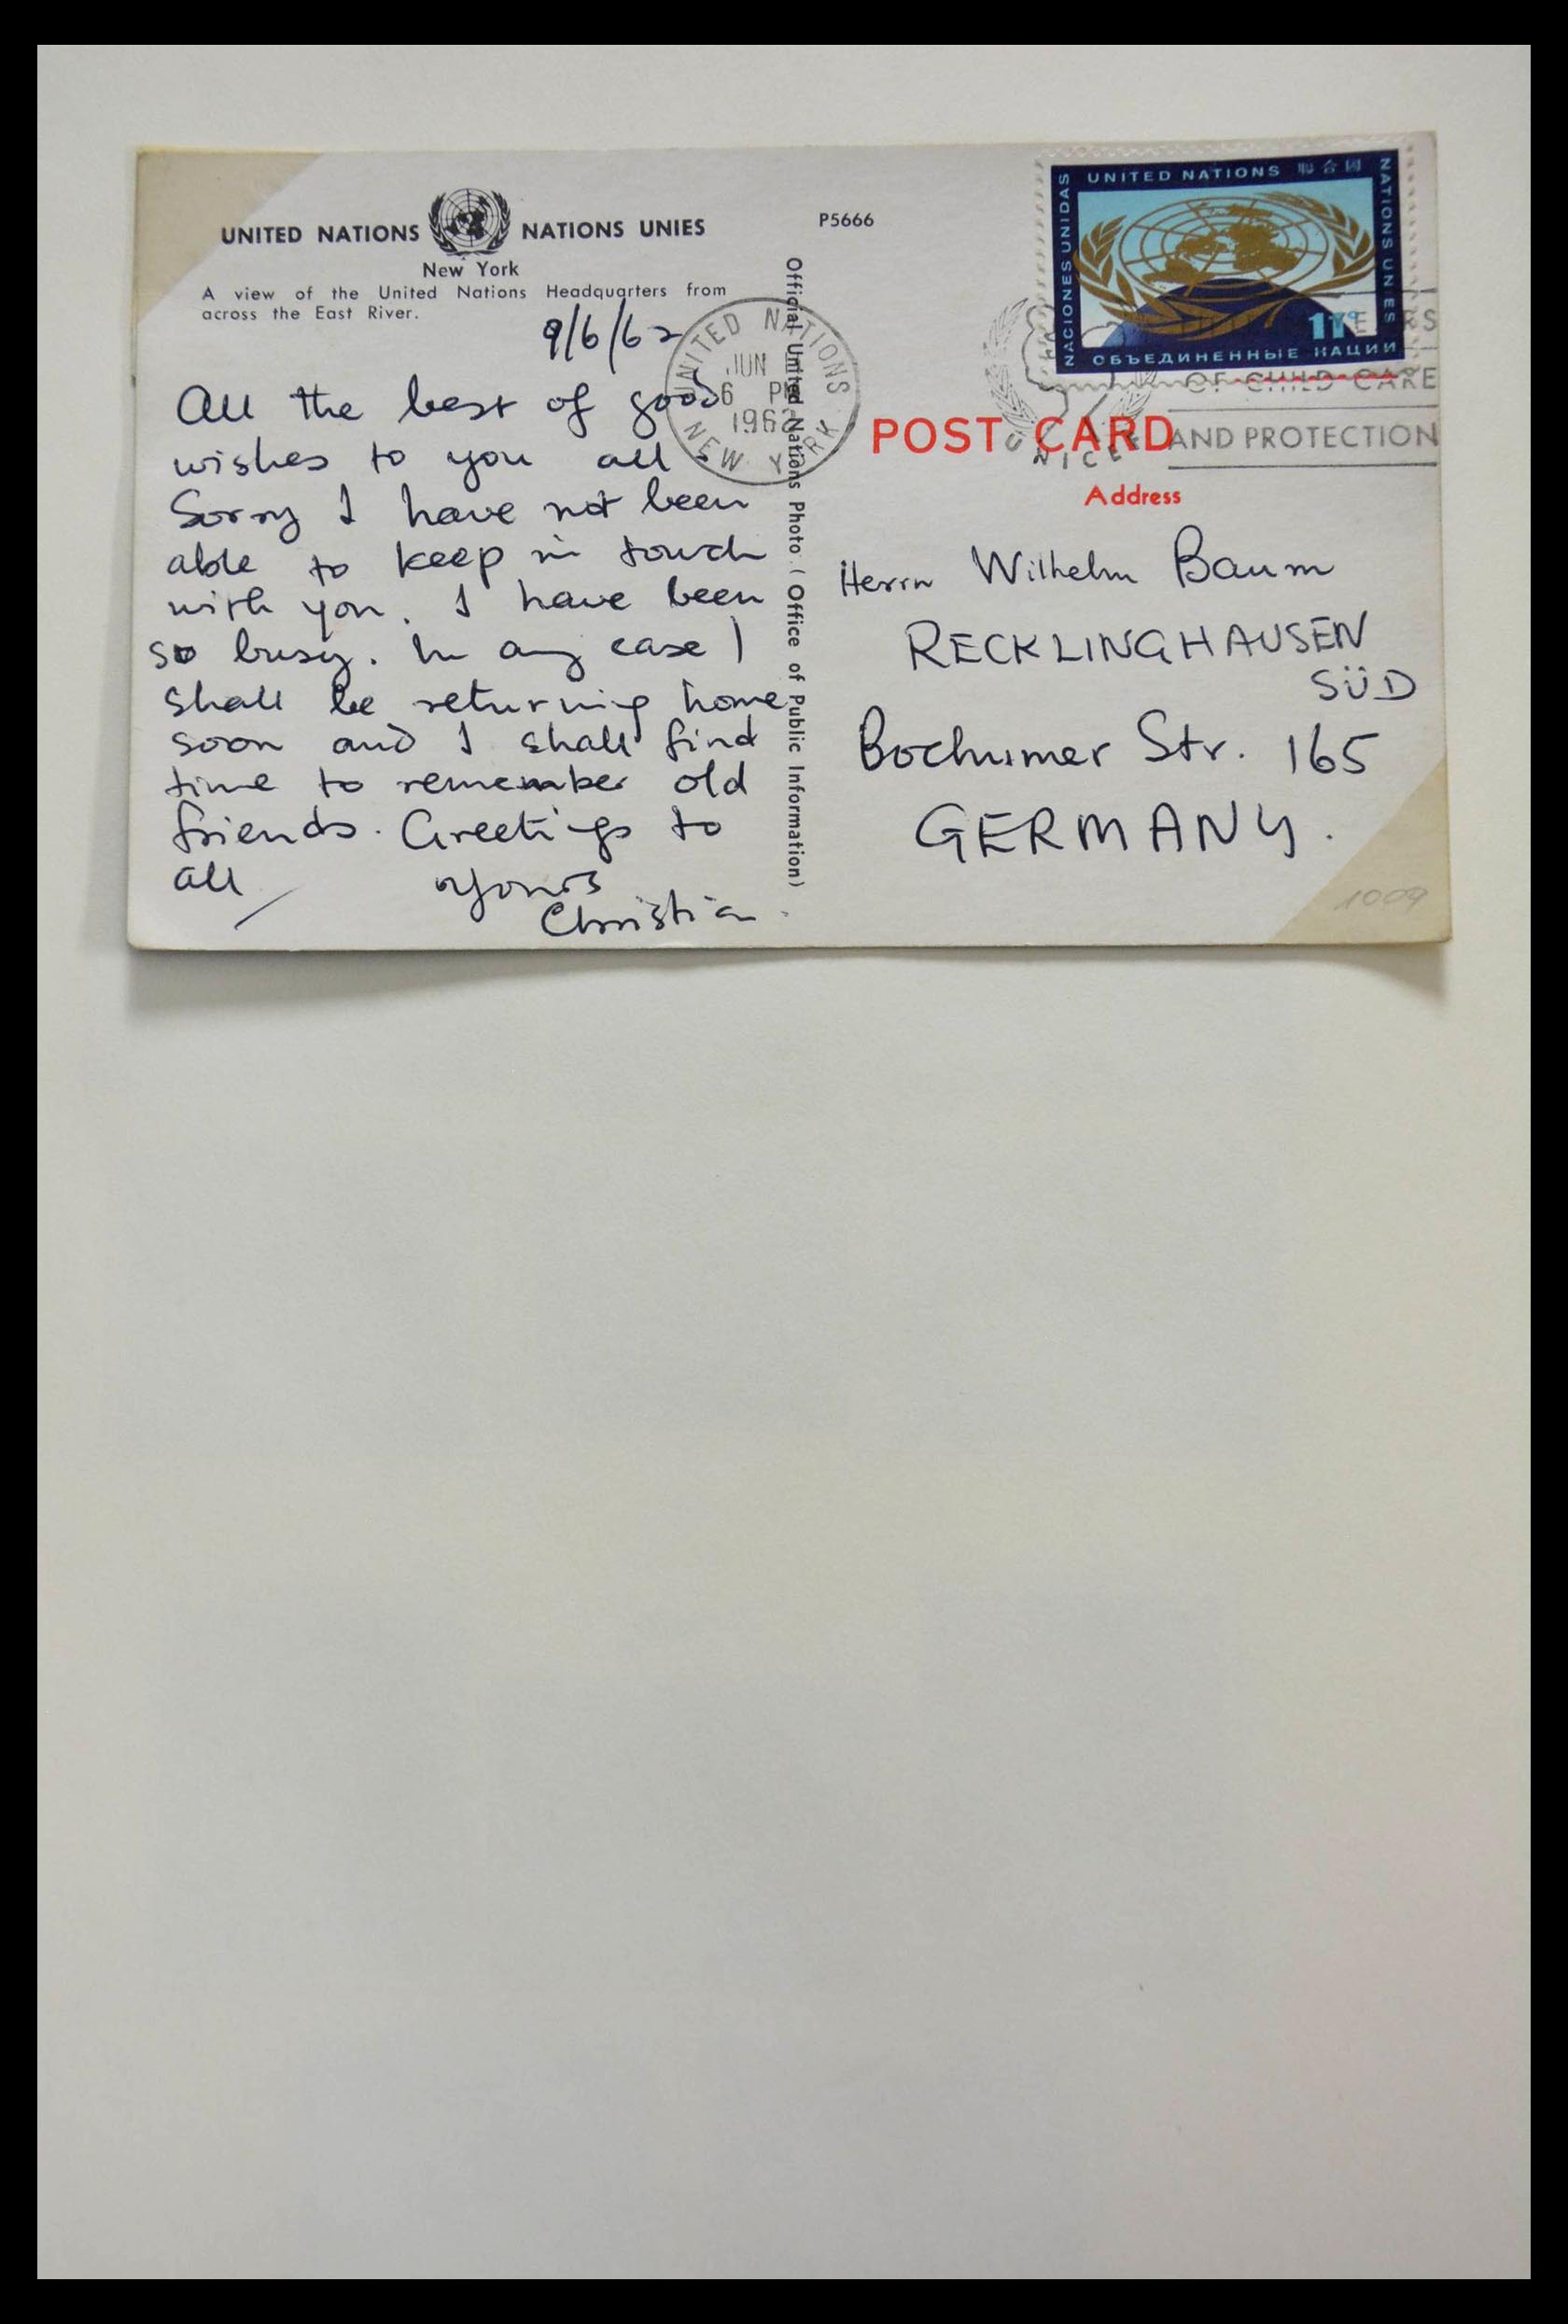 UNITED NATIONS NATIONS UNIES
New York
A view of the United Nations Headquarters from
across the East River.
9/6/62
All the best of good
wishes to you all.
Sorry I have not been
able to keep in touch
with you. I have been
so busy. In any case I
shall be returning home
soon and I shall find
time to remember old
friends. Greetings to
all
Yours
Christian.
UNITED NATIONS
JUN
6 PM
1962
NEW YORK
Official United Nations Photo (Office of Public Information)
P5666
UNITED NATIONS 聯合國
NACIONES UNIDAS
NATIONS UNIES
11c
ОБЪЕДИНЕННЫЕ НАЦИИ
OF CHILD CARE
AND PROTECTION
UNICEF
POST CARD
Address
Herrn Wilhelm Baum
RECKLINGHAUSEN
SÜD
Bochumer Str. 165
GERMANY.
1009